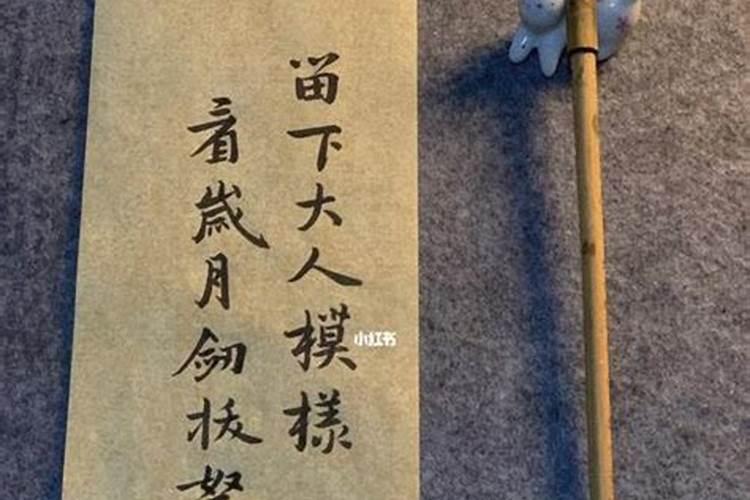 留下大人模樣
看歲月劒拔
小红书